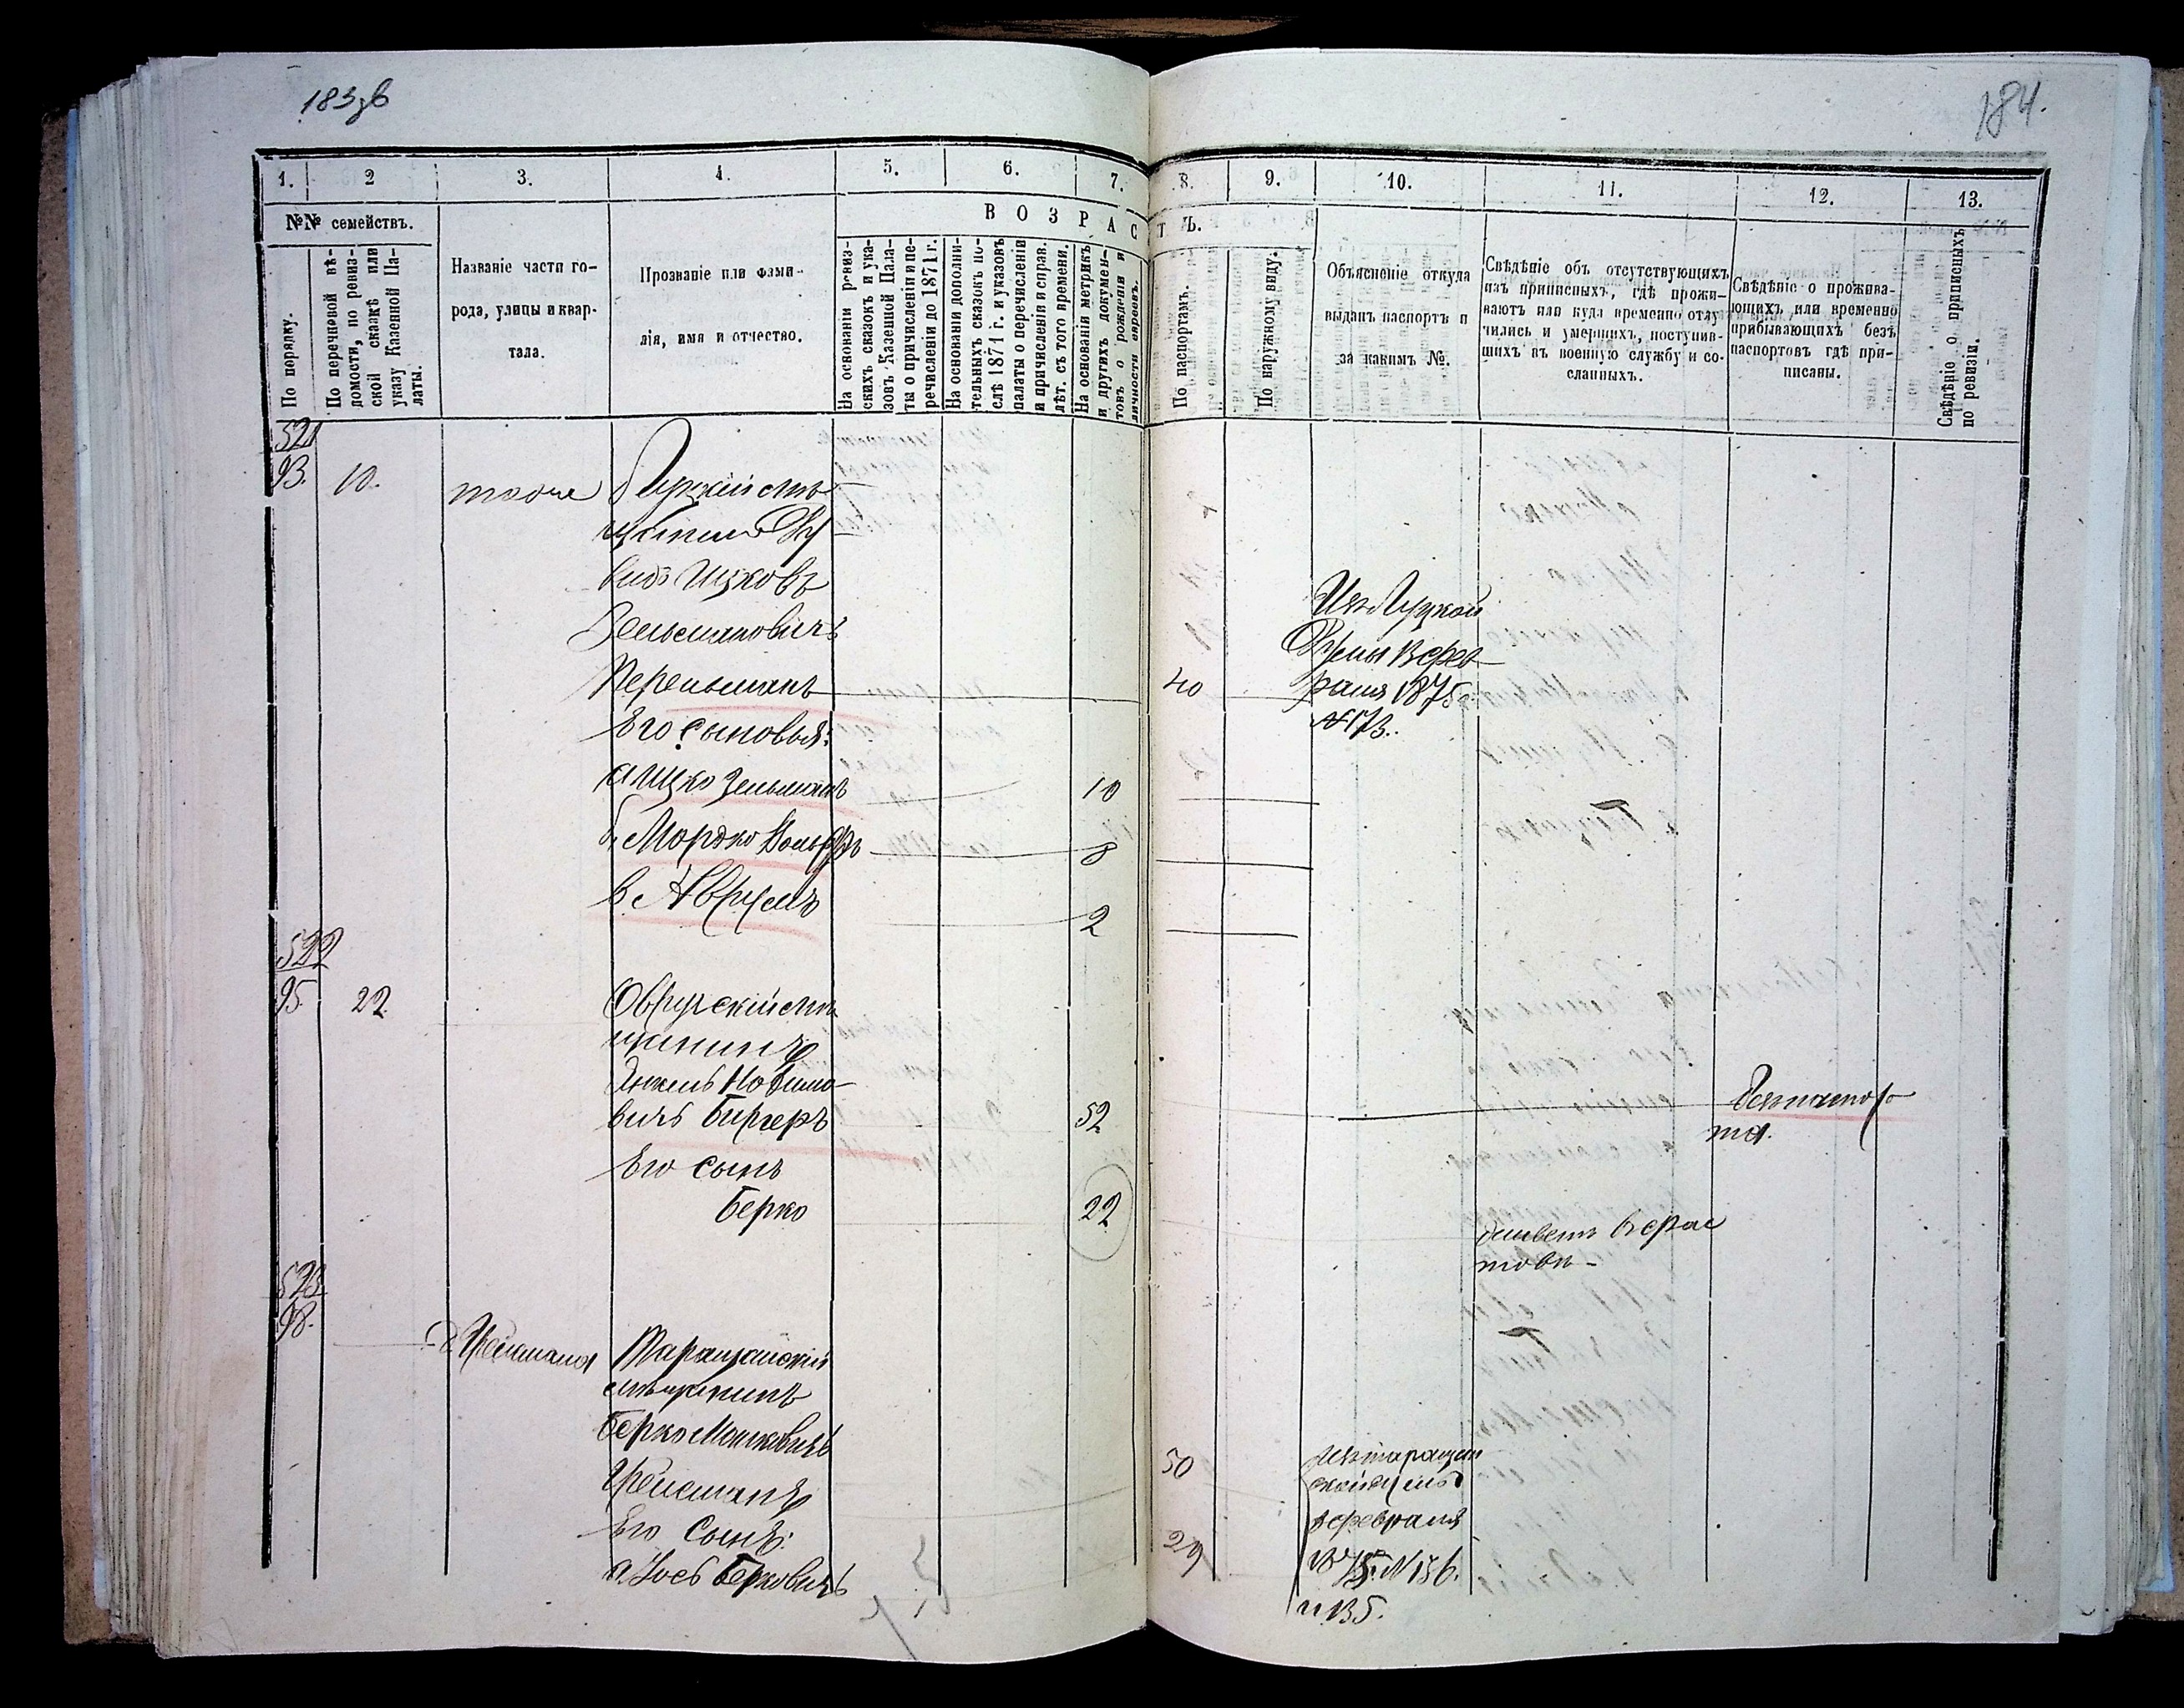 183зв
184.
1.
2
3.
4.
5.
6.
7.
8.
9.
10.
11.
12.
13.
№№ семействъ.
ВОЗРАСТЪ.
По порядку.
По перечневой вѣ-
домости, по ревиз-
ской сказкѣ или
указу Казенной Па-
латы.
Названіе части го-
рода, улицы и квар-
тала.
Прозваніе или фами-
лія, имя и отчество.
На основаніи ревиз-
скихъ сказокъ и ука-
зовъ Казенной Пала-
ты о причисленіи и пе-
речисленіи до 1871 г.
На основаніи дополни-
тельныхъ сказокъ по-
слѣ 1871 г. и указовъ
палаты о перечисленіи
и причисленіи и справ.
лѣт. съ того времени.
На основаніи метрикъ
и другихъ докумен-
товъ о рожденіи и
личности евреевъ.
По паспортамъ.
По наружному виду.
Объясненіе откуда
выданъ паспортъ и
за какимъ №.
Свѣдѣніе объ отсутствующихъ
изъ приписныхъ, гдѣ прожи-
ваютъ или куда временно отлу-
чились и умершихъ, поступив-
шихъ въ военную службу и со-
сланныхъ.
Свѣдѣніе о прожива-
ющихъ или временно
прибывающихъ безъ
паспортовъ гдѣ при-
писаны.
Свѣдѣніе о приписныхъ
по ревизіи.
521
93.
10.
тоже
Луцкій мѣ-
щанинъ Ду
видъ Ицковъ
Зельмановичъ
Перельманъ
40
Изъ Луцкой
Думы 13 фев-
раля 1875 г.
№ 173.
Его сыновья:
а Ицко Зельманъ
10
б, Мордко Вольфъ
8
в Аврумъ
2
522
95
22
Овручскій мѣ
щанинъ
Янкель
вичъ Бургеръ
52
Безъ паспор-
та.
Его сынъ
Берко
22
живетъ въ Рос
товѣ
523
98.
д. Грейсмана
Таращанскій
мѣщанинъ
Берко Мошковичъ
Грейсманъ
50
Изъ Таращан
ской Думы
февраля
1875 г. № 136.
и 135.
Его Сынъ:
а. Іось Берковичъ
29